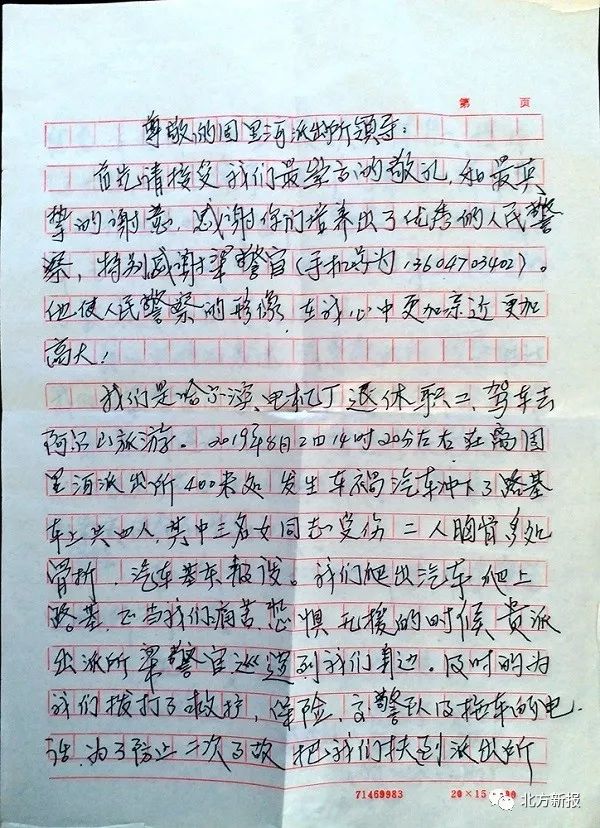 第 页
尊敬的固里河派出所领导:
首先请接受我们最崇高的敬礼,和最真
挚的谢意,感谢你们培养出了优秀的人民警
察,特别感谢梁警官(手机号为13604703402)。
他使人民警察的形像,在我心中更加亲近更加
高大!
我们是哈尔滨电机厂退休职工,驾车去
阿尔山旅游。2019年8月2日14时20分左右在离固
里河派出所400来处发生车祸汽车冲下了路基
车上共四人,其中三名女同志受伤 二人胸骨多处
骨折,汽车基本报废。我们爬出汽车爬上
路基,正当我们痛苦、恐惧无援的时候贵派
出派所梁警官巡逻到我们身边。及时的为
我们拨打了救护,保险,交警队及拖车的电
话.为了防止二次事故 把我们扶到派出所
71469983 20×15
北方新报